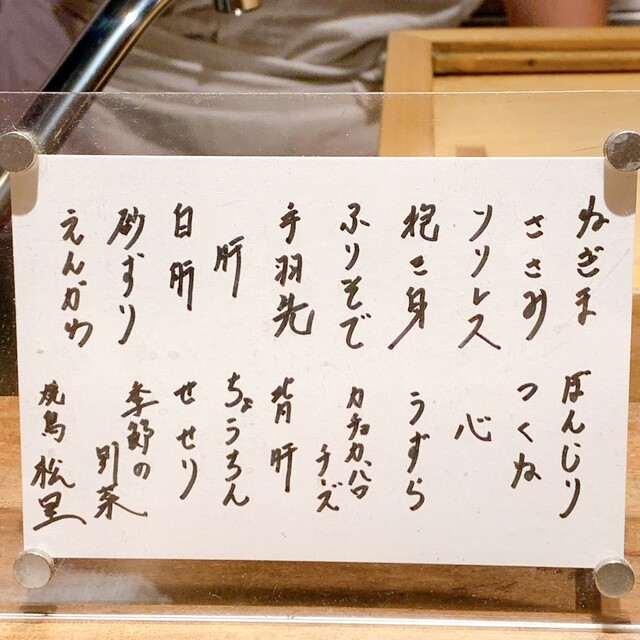 ねぎま
ささみ
ソリレス
抱き身
ふりそで
手羽先
肝
白肝
砂ずり
えんがわ
ぼんじり
つくね
心
うずら
カチョカバロ
チーズ
背肝
ちょうちん
せせり
季節の
野菜
焼鳥 松里